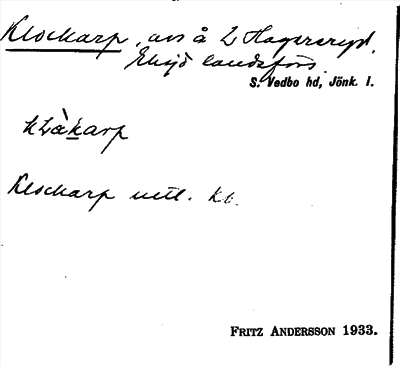 Klockarp, avs å L Hagersryd,
Eksjö landsförs.
S. Vedbo hd, Jönk. l.
klåkarp
Klockarp uttl. kb.
FRITZ ANDERSSON 1933.